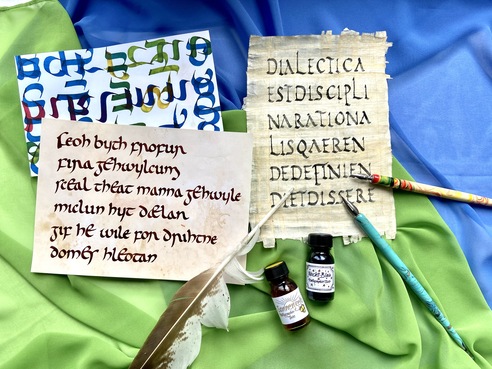 feoh byth frofur
fira gehwylcum
sceal manna gehwylc
miclun hyt dælan
gif he wile for drihtne
domes hleotan
DIALECTICA
ESTDISCIPLI
NARATIONA
LISQAEREN
DEDEFINIEN
DIETDISSERE